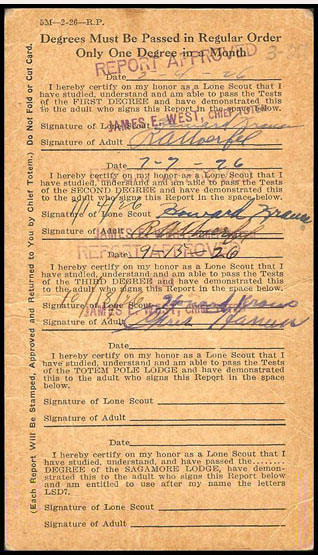 5M—2-26—R.P.
Degrees Must Be Passed in Regular Order
Only One Degree in a Month.
REPORT APPROVED
Date 2 - 9 - 26
I hereby certify on my honor as a Lone Scout that I
have studied, understand and am able to pass the Tests
of the FIRST DEGREE and have demonstrated this
to the adult who signs this Report in the space below.
JAMES E. WEST, CHIEF TOTEM
Signature of Lone Scout Howard Kraus
Signature of Adult
Date 7-7 26
I hereby certify on my honor as a Lone Scout that I
have studied, understand and am able to pass the Tests
of the SECOND DEGREE and have demonstrated this
to the adult who signs this Report in the space below.
9/14/26
Signature of Lone Scout Howard Kraus
Signature of Adult
REPORT APPROVED
Date 9-15-26
I hereby certify on my honor as a Lone Scout that I
have studied, understand and am able to pass the Tests
of the THIRD DEGREE and have demonstrated this
to the adult who signs this Report in the space below.
10/18/26
Signature of Lone Scout Howard Kraus
JAMES E. WEST, CHIEF
Signature of Adult
Date
I hereby certify on my honor as a Lone Scout that I
have studied, understand and am able to pass the Tests
of the TOTEM POLE LODGE and have demonstrated
this to the adult who signs this Report in the space
below.
Signature of Lone Scout
Signature of Adult
Date
I hereby certify on my honor as a Lone Scout that I
have studied, understand, and have passed the........
DEGREE of the SAGAMORE LODGE, have demon-
strated this to the adult who signs this Report below
and am entitled to use after my name the letters
LSD7.
Signature of Lone Scout
Signature of Adult
(Each Report Will Be Stamped, Approved and Returned to You by Chief Totem.) Do Not Fold or Cut Card.